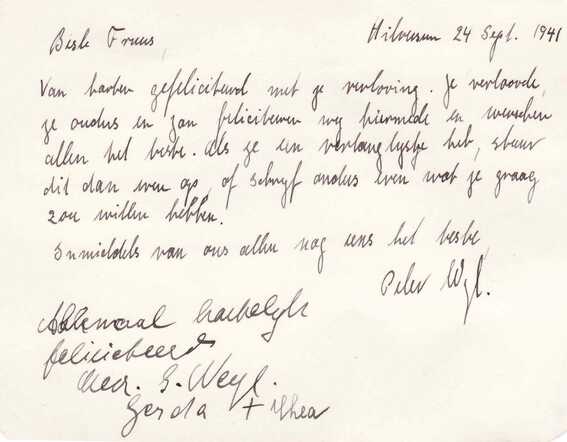 Beste Truus,
Hilversum 24 Sept. 1941
Van harten gefeliciteerd met je verloving. Je verloofde,
je ouders en zan feliciteeren wy hiermede en wenschen
allen het beste. Als je een verlanglystje heb, stuur
dit dan even op, of schryf anders even wat je graag
zou willen hebben.
Inmiddels van ons allen nog eens het beste,
Peter Weyl.
Allemaal hartelyk
gefeliciteerd
Mevr. G. Weyl.
Gerda + Thea